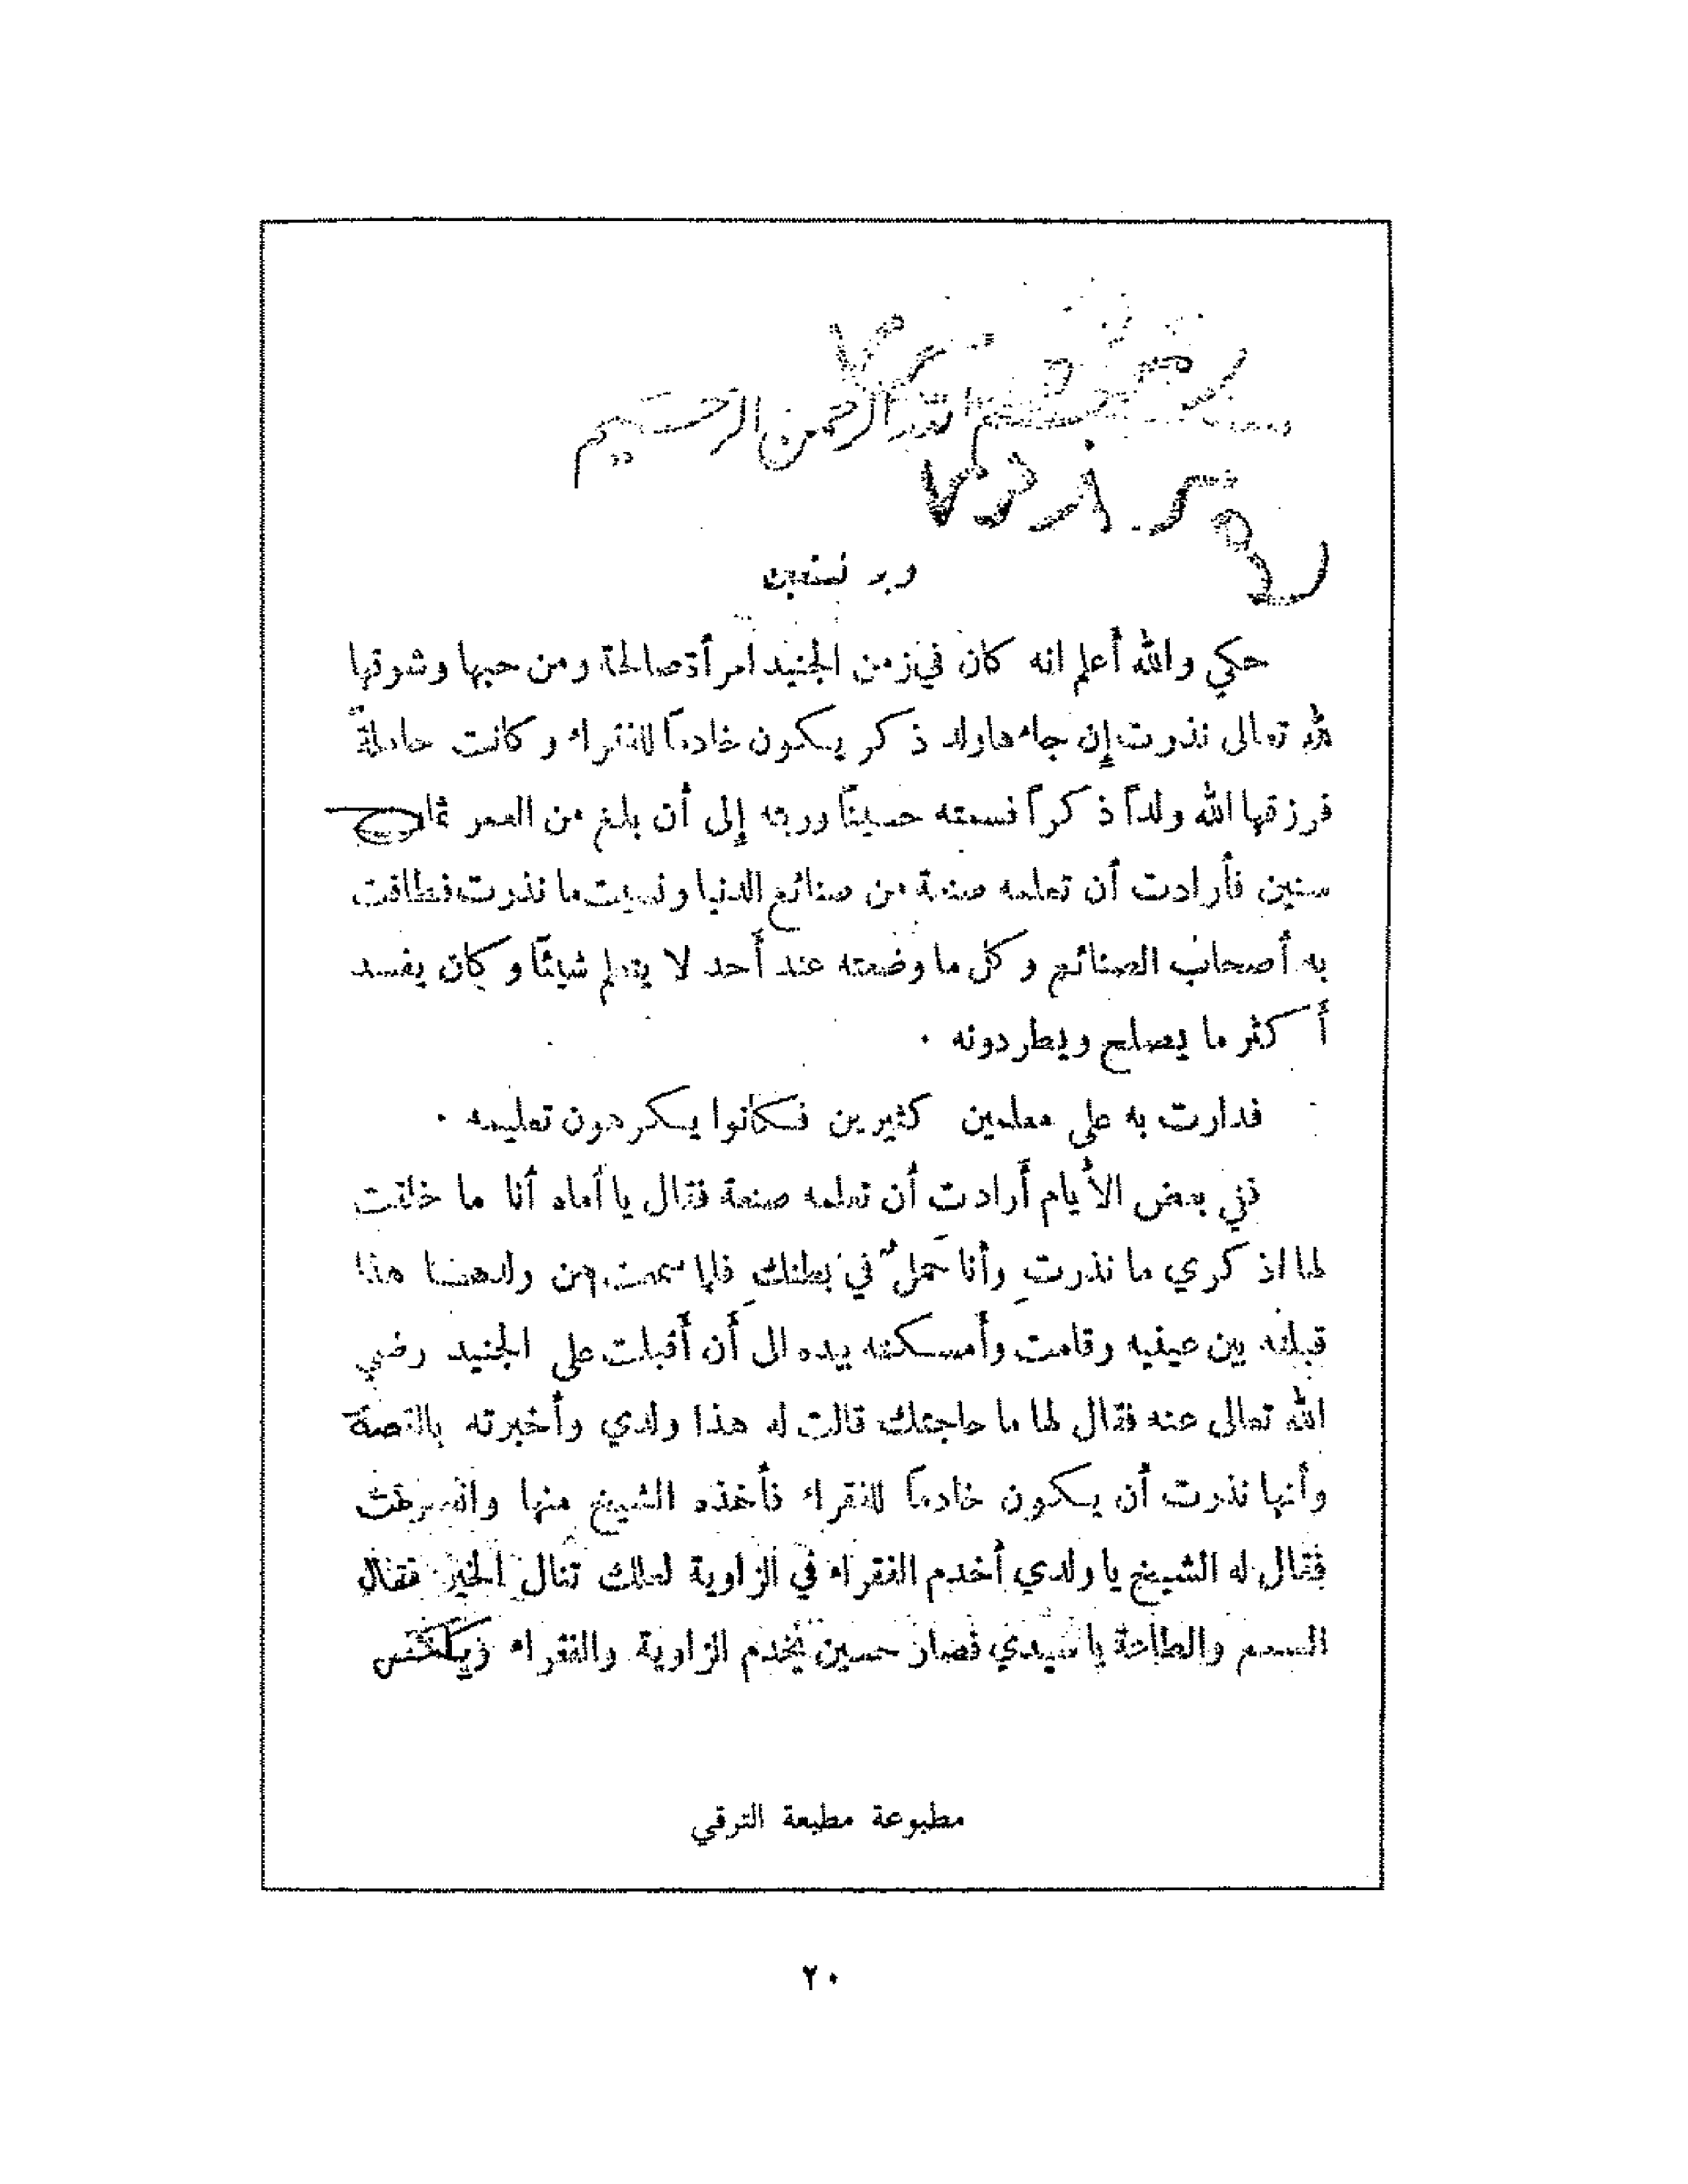 بسم الله الرحمن الرحيم
وبه نستعين
حكي والله أعلم انه كان في زمن الجنيد امرأة صالحة ومن حبها وشوقها
لله تعالى نذرت إن جاءها ولد ذكر يكون خادماً للفقراء وكانت حاملةً
فرزقها الله ولداً ذكراً فسمته حسيناً وربته إلى أن بلغ من العمر ثمان
سنين فأرادت أن تعلمه صنعة من صنائع الدنيا ونسيت ما نذرت فطافت
به أصحاب الصنائع وكل ما وضعته عند أحد لا يتعلم شيئاً وكان يفسد
أكثر ما يصلح ويطردونه .
فدارت به على معلمين كثيرين فكانوا يكرهون تعليمه .
ففي بعض الأيام أرادت أن تعلمه صنعة فقال يا أماه أنا ما خلقت
لها اذكري ما نذرتِ وأنا حَملٌ في بطنكِ فلما سمعت من ولدها هذا
قبلته بين عينيه وقامت وأمسكته بيده الى أن أقبلت على الجنيد رضي
الله تعالى عنه فقال لها ما حاجتك قالت له هذا ولدي وأخبرته بالقصة
وأنها نذرت أن يكون خادماً للفقراء فأخذه الشيخ منها وانصرفت
فقال له الشيخ يا ولدي أخدم الفقراء في الزاوية لعلك تنال الخير فقال
السمع والطاعة يا سيدي فصار حسين يخدم الزاوية والفقراء ويكنس
مطبوعة مطبعة الترقي
٢٠